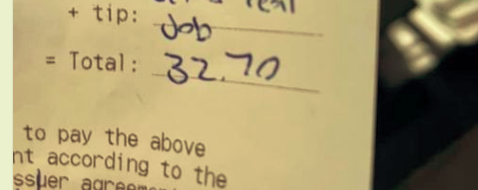 a real
+ tip: Job
= Total: 32.70
to pay the above
nt according to the
ssuer agreem